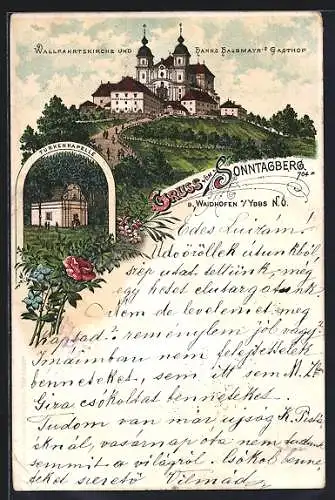 WALLFAHRTSKIRCHE UND HANNS HALBMAYR'S GASTHOF
TÜRKENKAPELLE
GRUSS vom SONNTAGBERG
704 m
B. WAIDHOFEN A/YBBS N.Ö.
Édes Luizám!
Üdvözöllek utunkból
szép utat tettünk, még
egy hetet elutazgatunk
leveleimet meg
kaptad? reménylem jól vagy?
Imáimban nem felejtettelek
benneteket, sem itt sem M.
csókoldat benneteket.
Tudom van már újság K. Pista
éknál, vasárnap óta nem tudunk
semmit a világról. Csókol benne
teket szerető Vilmád